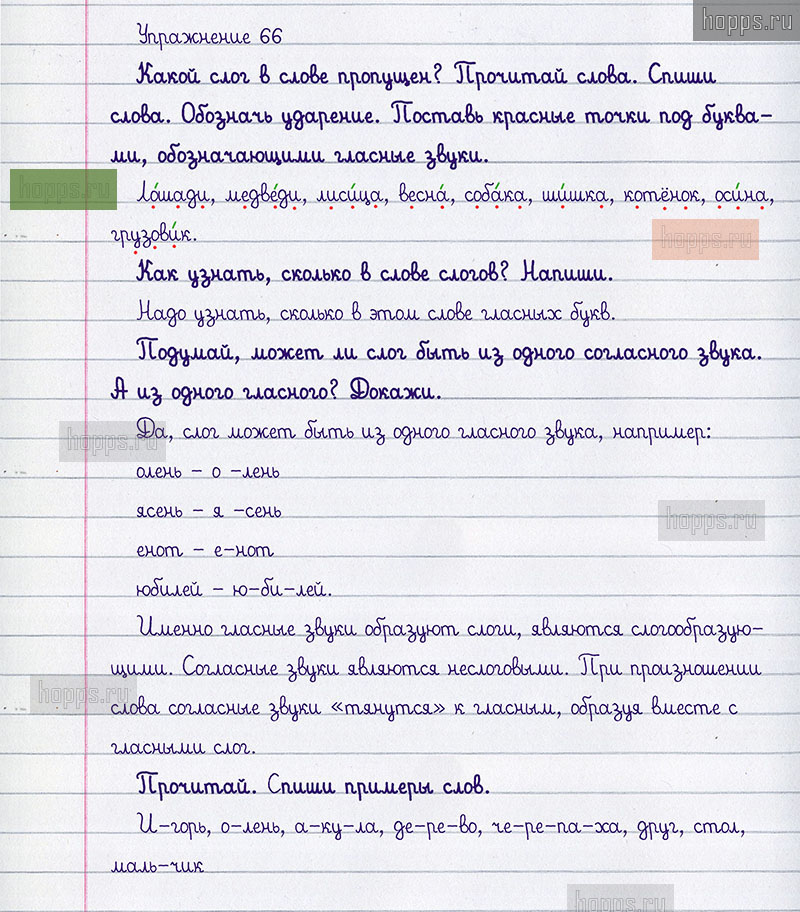 hopps.ru
Упражнение 66
Какой слог в слове пропущен? Прочитай слова. Спиши
слова. Обозначь ударение. Поставь красные точки под буква-
ми, обозначающими гласные звуки.
hopps.ru
Ло́шади, медве́ди, лиси́ца, весна́, соба́ка, ши́шка, котёнок, оси́на,
грузови́к.
hopps.ru
Как узнать, сколько в слове слогов? Напиши.
Надо узнать, сколько в этом слове гласных букв.
Подумай, может ли слог быть из одного согласного звука.
А из одного гласного? Докажи.
Да, слог может быть из одного гласного звука, например:
hopps.ru
олень – о –лень
ясень – я –сень
hopps.ru
енот – е-нот
юбилей – ю-би-лей.
Именно гласные звуки образуют слоги, являются слогообразую-
щими. Согласные звуки являются неслоговыми. При произношении
hopps.ru
слова согласные звуки «тянутся» к гласным, образуя вместе с
гласными слог.
Прочитай. Спиши примеры слов.
И-горь, о-лень, а-ку-ла, де-ре-во, че-ре-па-ха, друг, стол,
маль-чик
hopps.ru